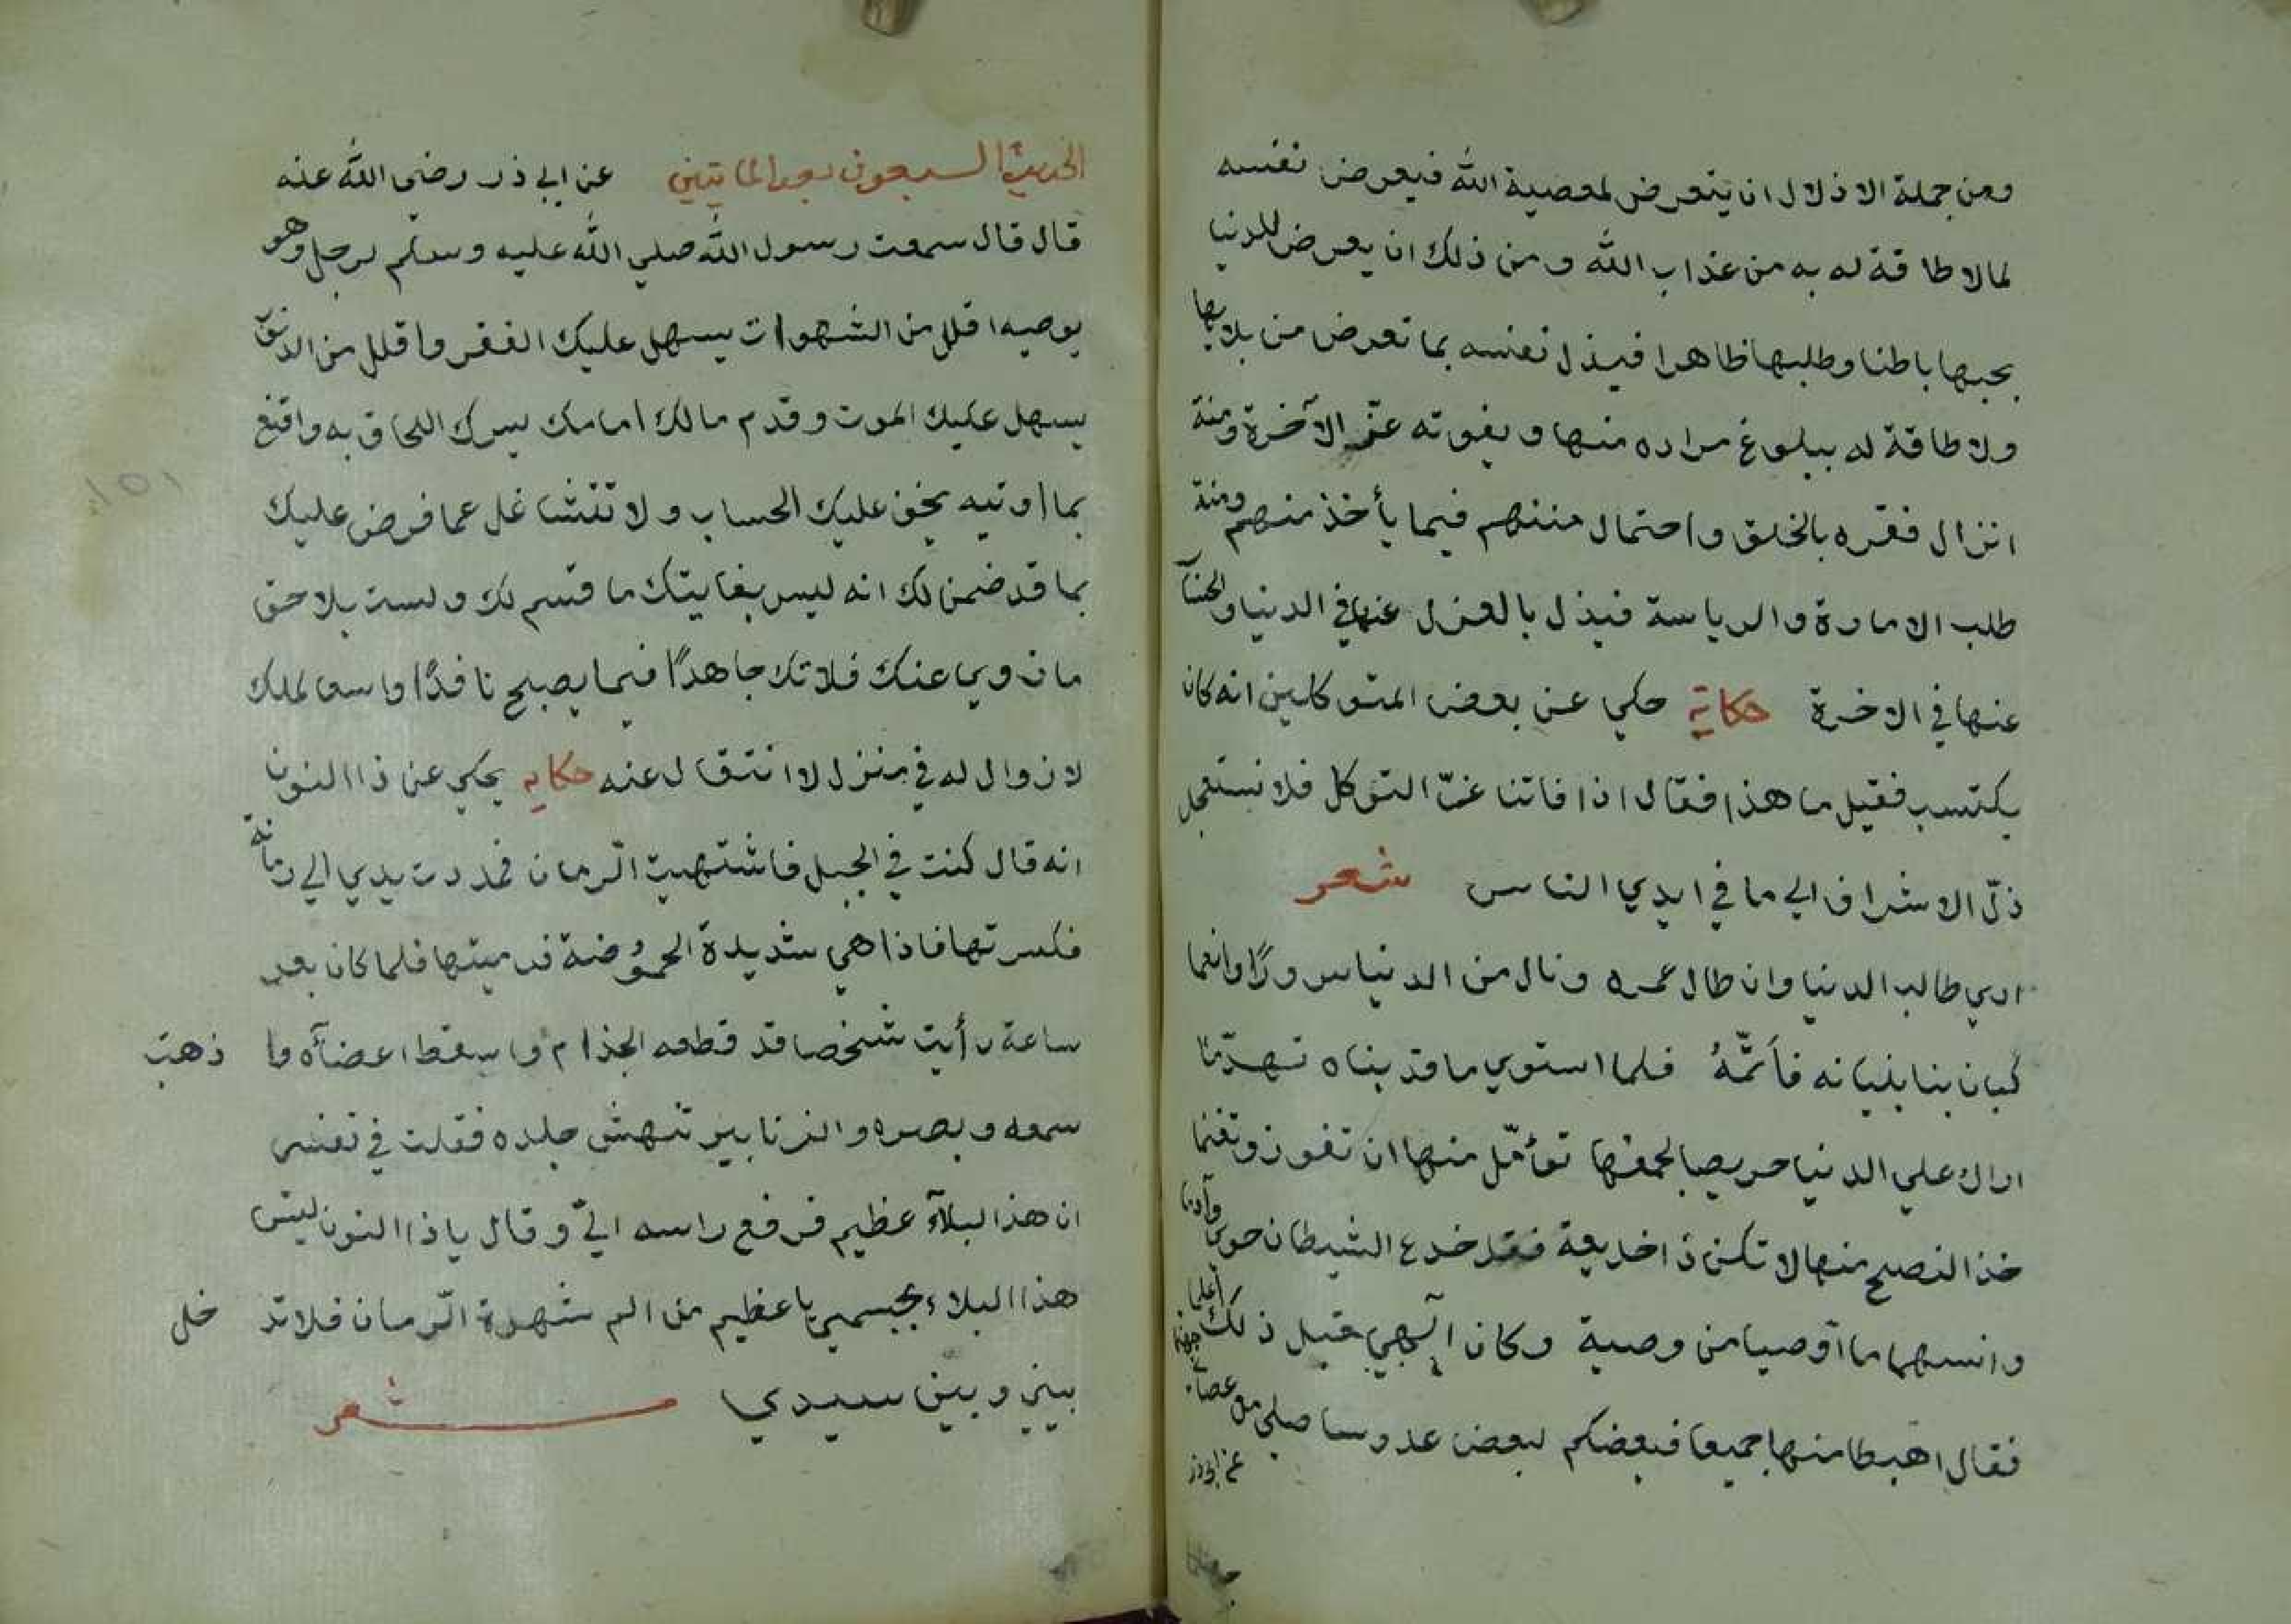 ومن جملة الاذلال ان يتعرض لمعصية الله فيعرض نفسه
لما لا طاقة له به من عذاب الله ومن ذلك ان يعرض للدنيا
بحبها باطنا وطلبها ظاهرا فيذل نفسه بما تعرض من بلايها
ولا طاقة له ببلوغ مراده منها ويفوته عز الآخرة ومنة
انزال فقره بالخلق واحتمال مننهم فيما يأخذ منهم ومنة
طلب الامارة والرياسة فيذل بالعزل عنها في الدنيا والحساب
عنها في الاخرة حكاية حكي عن بعض المتوكلين انه كان
يكتسب فقيل ما هذا فقال اذا فاتنا عزّ التوكل فلا نستعجل
ذلّ الاشراف الي ما في ايدي الناس شعر
اري طالب الدنيا وان طال عمره ونال من الدنيا سرورًا وانعما
كبان بنا بنيانه فأتمّهُ فلما استوي ما قد بناه تهدّما
اراك علي الدنيا حريصا لجمعها تؤمّل منها ان تفوز وتغنما
خذ النصح منها لا تكن ذا خديعة فقد خدع الشيطان حوي وآدما
وانسهما ما آوصيا من وصية وكان إلهي قبل ذلك اعلما
فقال اهبطا منها جميعا فبعضكم لبعض عدو سا صلي من عصا جهنما
عن ابي ذر
الحديث السبعون بعد المايتين عن ابي ذر رضي الله عنه
قال قال سمعت رسول الله صلي الله عليه وسلم لرجل وهو
يوصيه اقلل من الشهوات يسهل عليك الفقر واقلل من الذنوب
يسهل عليك الموت وقدم مالك امامك يسرك اللحاق به واقنع
بما اوتيه يخف عليك الحساب ولا تتشاغل عما فرض عليك
بما قد ضمن لك انه ليس بفايتك ما قسم لك ولست بلاحق
ما زوي عنك فلا تك جاهدًا فيما يصبح نافدًا واسع لملك
لا زوال له في منزل لا انتقال عنه حكايه يحكي عن ذا النون
انه قال كنت في الجبل فاشتهيت الرمان فمددت يدي الي رمانة
فكسرتها فاذا هي شديدة الحموُضة فرميتها فلما كان بعد
ساعة رأيت شخصا قد قطعه الجذام واسقط اعضآه وا ذهب
سمعه وبصره والزنابير تنهش جلده فقلت في نفسي
ان هذا البلآء عظيم فرفع راسه اليّ وقال يا ذا النون ليس
هذا البلاء بجسمي باعظيم من الم شهوة الرمان فلا تد خل
بيني وبين سيدي شعر